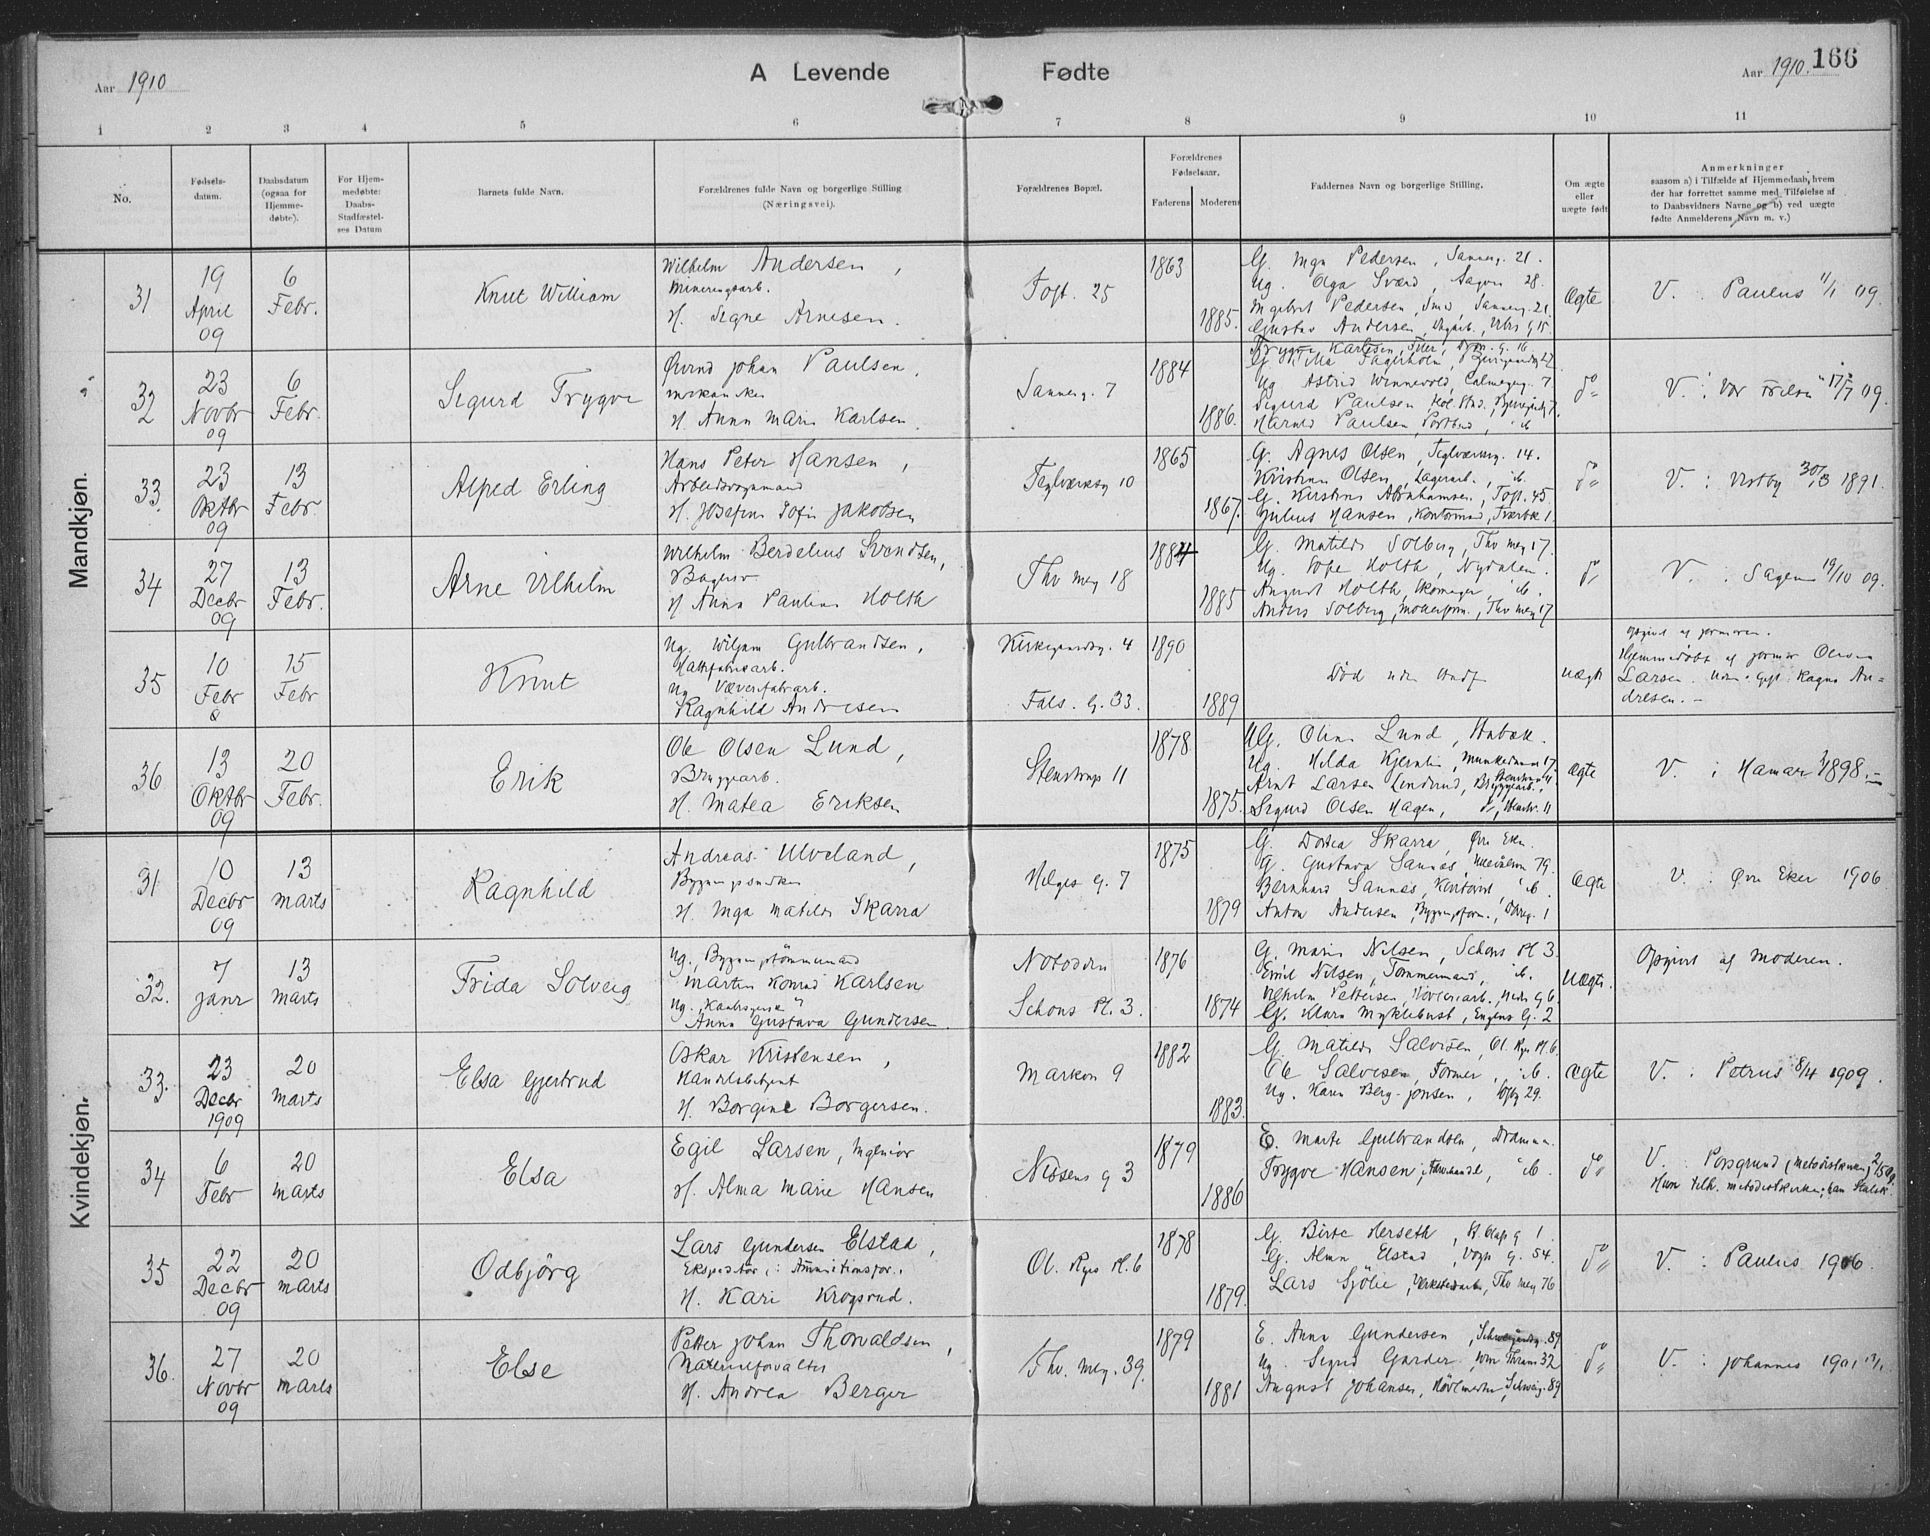 Aar 1910
A Levende Fødte
Aar 1910. 166
1 2 3 4 5 6 7 8 9 10 11
No.
Fødsels-
datum.
Daabsdatum
(ogsaa for
Hjemme-
døbte).
For Hjem-
medøbte:
Daabs-
Stadfæstel-
ses Datum
Barnets fulde Navn.
Forældrenes fulde Navn og borgerlige Stilling
(Næringsvei).
Forældrenes Bopæl.
Forældrenes
Fødselsaar.
Faderens Moderens
Faddernes Navn og borgerlige Stilling.
Om ægte
eller
uægte født
Anmerkninger
saasom a) i Tilfælde af Hjemmedaab, hvem
der har forrettet samme med Tilføielse af
to Daabsvidners Navne og b) ved uægte
fødte Anmelderens Navn m. v.)
Mandkjøn.
31
19
April
09
6
Febr.
Knut William
Wilhelm Andersen,
Mineringsarb.
H. Signe Arnesen.
Toft. 25
1863
1885.
G. Inga Pedersen, Sannerg. 21.
Ug. Olga Sværd, Aagon 28.
Ingebret Pedersen, Smed, Sannerg. 21.
Gustav Andersen,
Ægte
V. : Paulus 1/1 09.
32
23
Novbr
09
6
Febr.
Sigurd Trygve
Øivind Johan Paulsen,
mekaniker
H. Anna Marie Karlsen.
Sannerg. 7
1884
1886.
Trygve Karlsen, Filer,
G. Milla Fagerholm,
Ug. Astrid Winnevold,
Sigurd Paulsen,
Harald Paulsen, Postbud, ib
do
V. : Vor Frelser 17/7 09.
33.
23
Oktbr
09
13
Febr
Alfred Erling
Hans Peter Hansen,
Arbeidsformand
H. Josefine Sofie Jakobsen
Teglværksg 10
1865
1867.
G. Agnes Olsen, Teglværksg. 14.
Kristian Olsen, Lagerarb., ib.
G. Kirstine Abrahamsen, Toft. 45
Julius Hansen, Kontormd, Tværbk 1.
do
V. : Vestby 30/3 1891.
34
27
Decbr
09
13
Febr.
Arne Vilhelm
Wilhelm Berdelius Svendsen,
Bagersv
H Anna Pauline Holth
Thv mey 18
1884
1885
G. Matilde Solberg, Thv mey 17.
Ug. Sofie Holth, Nydalen.
August Holth, Skomager, ib.
Anders Solberg, Thv mey 17
do
V. : Sagene 19/10 09.
35
10
Febr
15
Febr
Knut
Ug. Wiljam Gulbrandsen,
Hattefabrikarb.
Ug Væverifabarb.
Ragnhild Andresen
Kirkegaardsg. 4
Fals. G. 33.
1890
1889
Død uden Indf
uægte
Opgivet af jormoren.
Hjemmedøbt af jormor Olivia
Larsen. Ragna An-
dresen. -
36
13
Oktbr
09
20
Febr.
Erik
Ole Olsen Lund,
Bryggearb.
H. Matea Eriksen
Stenstrup 11
1878
1875.
Ug. Oline Lund,
Ug. Hilda Kjernlie, Munkedamm 17.
Arnt Larsen Linderud, Bryggearb., Stenstrup 11
Sigurd Olsen Hagen, do, Stenstr. 11
Ægte
V. : Hamar 1898. -
Kvindekjøn.
31
10
Decbr
09
13
marts
Ragnhild
Andreas Ulveland,
Bygningssnedker
H. Inga Matilde Skarra
Helges G. 7
1875
1879
G. Dortea Skarra, Øvre Eker.
G. Gustava Sannes, 79.
Bernhard Sannes, Kontorist, ib.
Anton Andersen,
Ægte
V. : Øvre Eker 1906
32.
7
Janr
13
marts
Frida Solveig
Ug., Bygningstømmermand
Martin Konrad Karlsen
Ug.
Anna Gustava Gundersen.
Notodden
Schous Pl. 3.
1876
1874
G. Marie Nilsen, Schous Pl 3.
Emil Nilsen, Tømmermand, ib.
Vilhelm Pettersen,
G. Klara Myklebust, Eugens G. 2
Uægte.
Opgivet af moderen.
33.
23
Decbr
1909
20
marts
Elsa Gjertrud
Oskar Kristensen,
Handelsbetjent
H. Borgine Borgersen.
Markvn 9
1882
1883.
G. Matilde Salvesen, Ol. Ryes Pl. 6.
Ole Salvesen, Former, ib.
Ug. Karen Berg-Jonsen, 29.
Ægte
V. : Petrus 8/4 1909.
34
6
Febr
20
marts
Elsa
Egil Larsen, Ingeniør
H. Alma Marie Hansen
Nissens g 3
1879
1886
E. Marte Gulbrandsen, Drammen.
Trygve Hansen, ib.
do
V. : Porsgrund (metodistkirken) 2/5 09.
Hun tilh. metodistkirken, han Statsk.
35
22
Decbr
09
20
marts
Odbjörg
Lars Gundersen Elstad,
Ekspeditør i Ammitionsfor.
H. Kari Krogsrud.
Ol. Ryes Pl. 6
1878
1879.
G. Birte Herseth, 1.
G. Alma Elstad, Vogts G. 54.
Lars Sjölie, Verkstedsarb, Thv mey 76
do
V. : Paulus 1906.
36.
27
Novbr
09
20
marts
Else
Petter Johan Thorvaldsen,
Materialforvalter
H. Andrea Berger
Thv. mey. 39.
1879
1881
E. Anna Gundersen, Schweigaardsg. 89
Ug. Sigrid Garder, 32
August Johansen, Høvlmester, Schweig. 89
do
V. : Johannes 1901